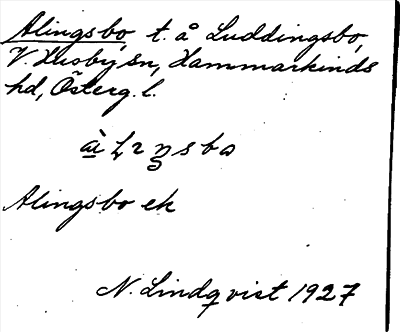 Alingsbo, t. å Luddingsbo,
V. Husby sn, Hammarkinds
hd, Österg. l.
Alingsbo ek
N. Lindqvist 1927